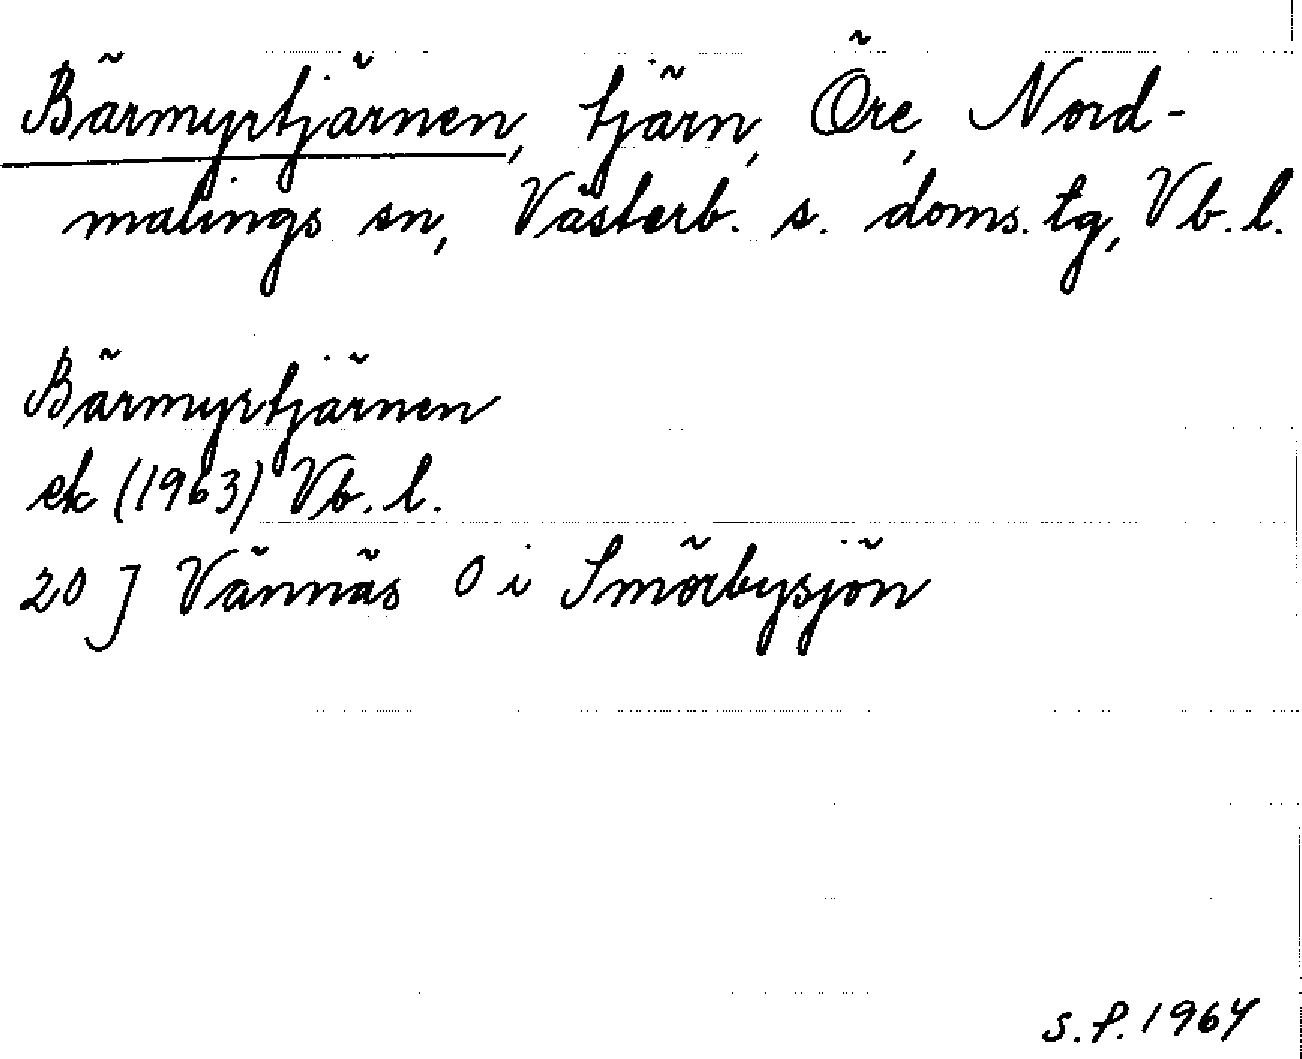 Bärmyrtjärnen, tjärn, Öre, Nord-
malings sn, Västerb. s. doms. tg, Vb. l.
Bärmyrtjärnen
ek (1963) Vb. l.
20 J Vännäs 0 i Smörbysjön
S.P. 1964